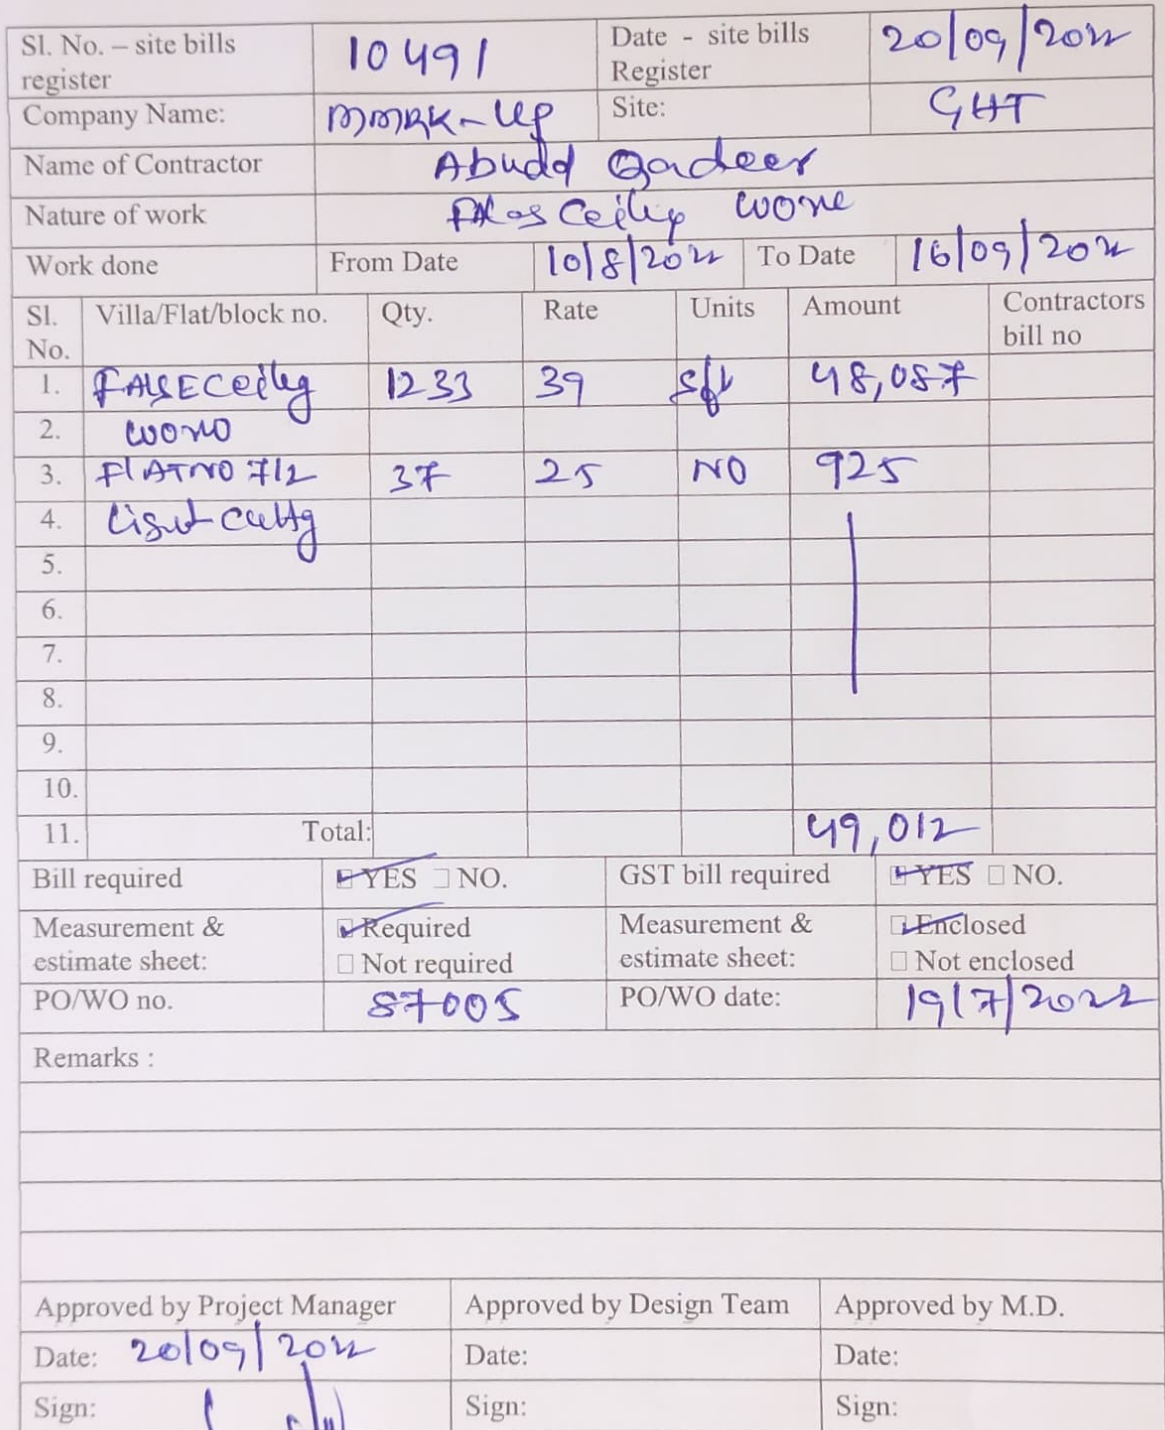 Sl. No. – site bills register 10491 Date - site bills Register 20/09/2022
Company Name: MMRK-LLP Site: GHT
Name of Contractor Abudd Qadeer
Nature of work Ceilig
Work done From Date 10/8/2022 To Date 16/09/2022
Sl. No. Villa/Flat/block no. Qty. Rate Units Amount Contractors bill no
1. FALSE Ceileg 1233 39 sft 48,087
2.
3. FlAT NO 712 37 25 NO 925
4.
5.
6.
7.
8.
9.
10.
11. Total: 49,012
Bill required YES NO. GST bill required YES NO.
Measurement & estimate sheet: Required Not required Measurement & estimate sheet: Enclosed Not enclosed
PO/WO no. 87005 PO/WO date: 19/7/2022
Remarks :
Approved by Project Manager Approved by Design Team Approved by M.D.
Date: 20/09/2022 Date: Date:
Sign: Sign: Sign: